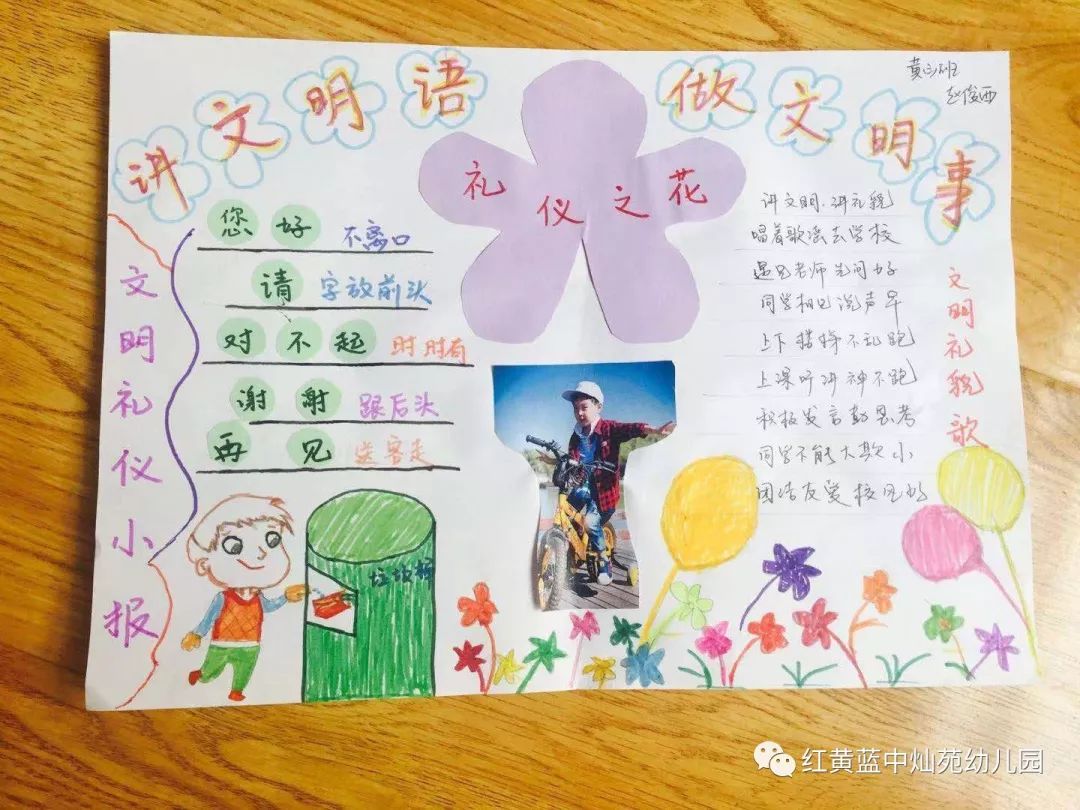 讲文明语 做文明事
黄山班
赵俊西
礼仪之花
文明礼仪小报
您好 不离口
请 字放前头
对不起 时时有
谢谢 跟后头
再见 送客走
垃圾桶
文明礼貌歌
讲文明.讲礼貌
唱着歌谣去学校
遇见老师先问好
同学相见说声早
上下楼梯不乱跑
上课听讲神不跑
积极发言勤思考
同学不能大欺小
团结友爱
红黄蓝中灿苑幼儿园